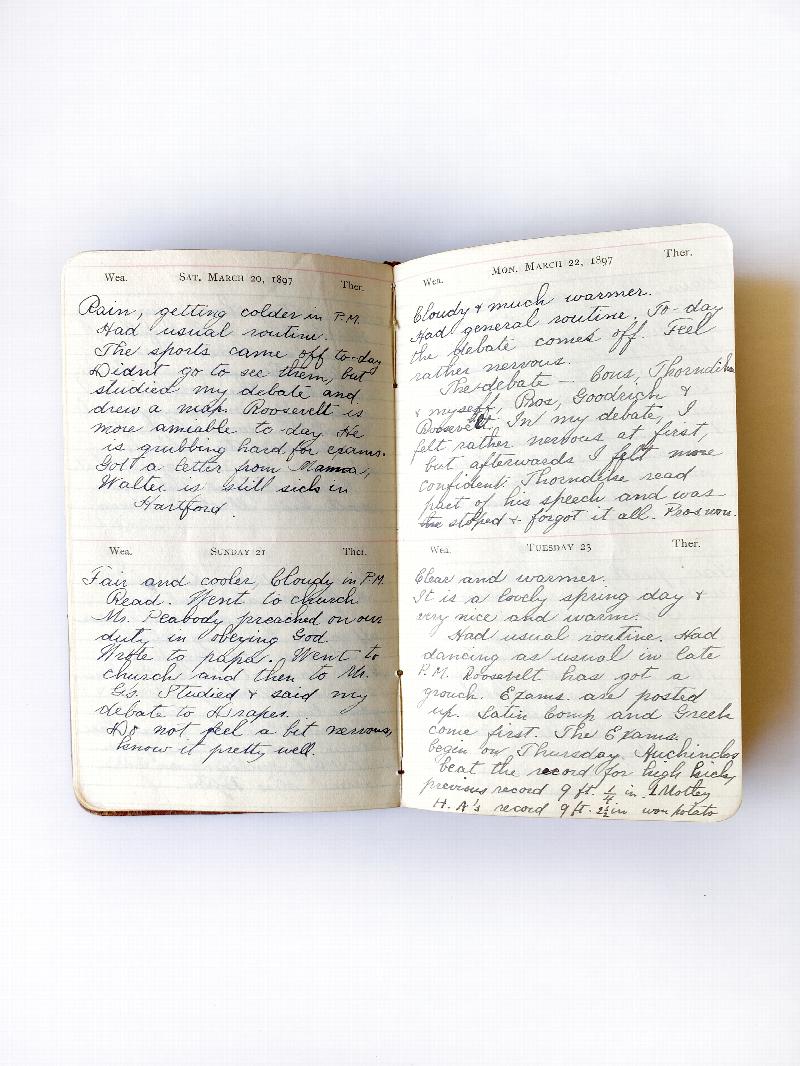 Wea. SAT. MARCH 20, 1897 Ther.
Rain, getting colder in P.M.
Had usual routine.
The sports came off to-day
Didnt go to see them, but
studied my debate and
drew a map. Roosevelt is
more amiable to-day. He
is grubbing hard for exams.
Got a letter from Mamma,
Walter is still sick in
Hartford.
Wea. SUNDAY 21 Ther.
Fair and cooler, Cloudy in P.M.
Read. Went to church
Mr. Peabody preached on our
duty in obeying God.
Wrote to papa. Went to
church and then to Mr.
G's. Studied & said my
debate to Draper.
Do not feel a bit nervous,
know it pretty well.
Wea. MON. MARCH 22, 1897 Ther.
Cloudy & much warmer.
Had general routine. To-day
the debate comes off. Feel
rather nervous.
The debate — Cons, Thorndike
& myself, Pros, Goodrich &
Roosevelt. In my debate, I
felt rather nervous at first,
but afterwards I felt more
confident. Thorndike read
part of his speech and was
stoped & forgot it all. Pros won.
Wea. TUESDAY 23 Ther.
Clear and warmer.
It is a lovely spring day &
very nice and warm.
Had usual routine. Had
dancing as usual in late
P.M. Roosevelt has got a
grouch. Exams. are posted
up. Latin Comp and Greek
come first. The Exams.
begin on Thursday. Auchincloss
beat the record for high kick
previous record 9 ft. 1/4 in. Motley
H. A's record 9 ft. 2 1/2 in won potato